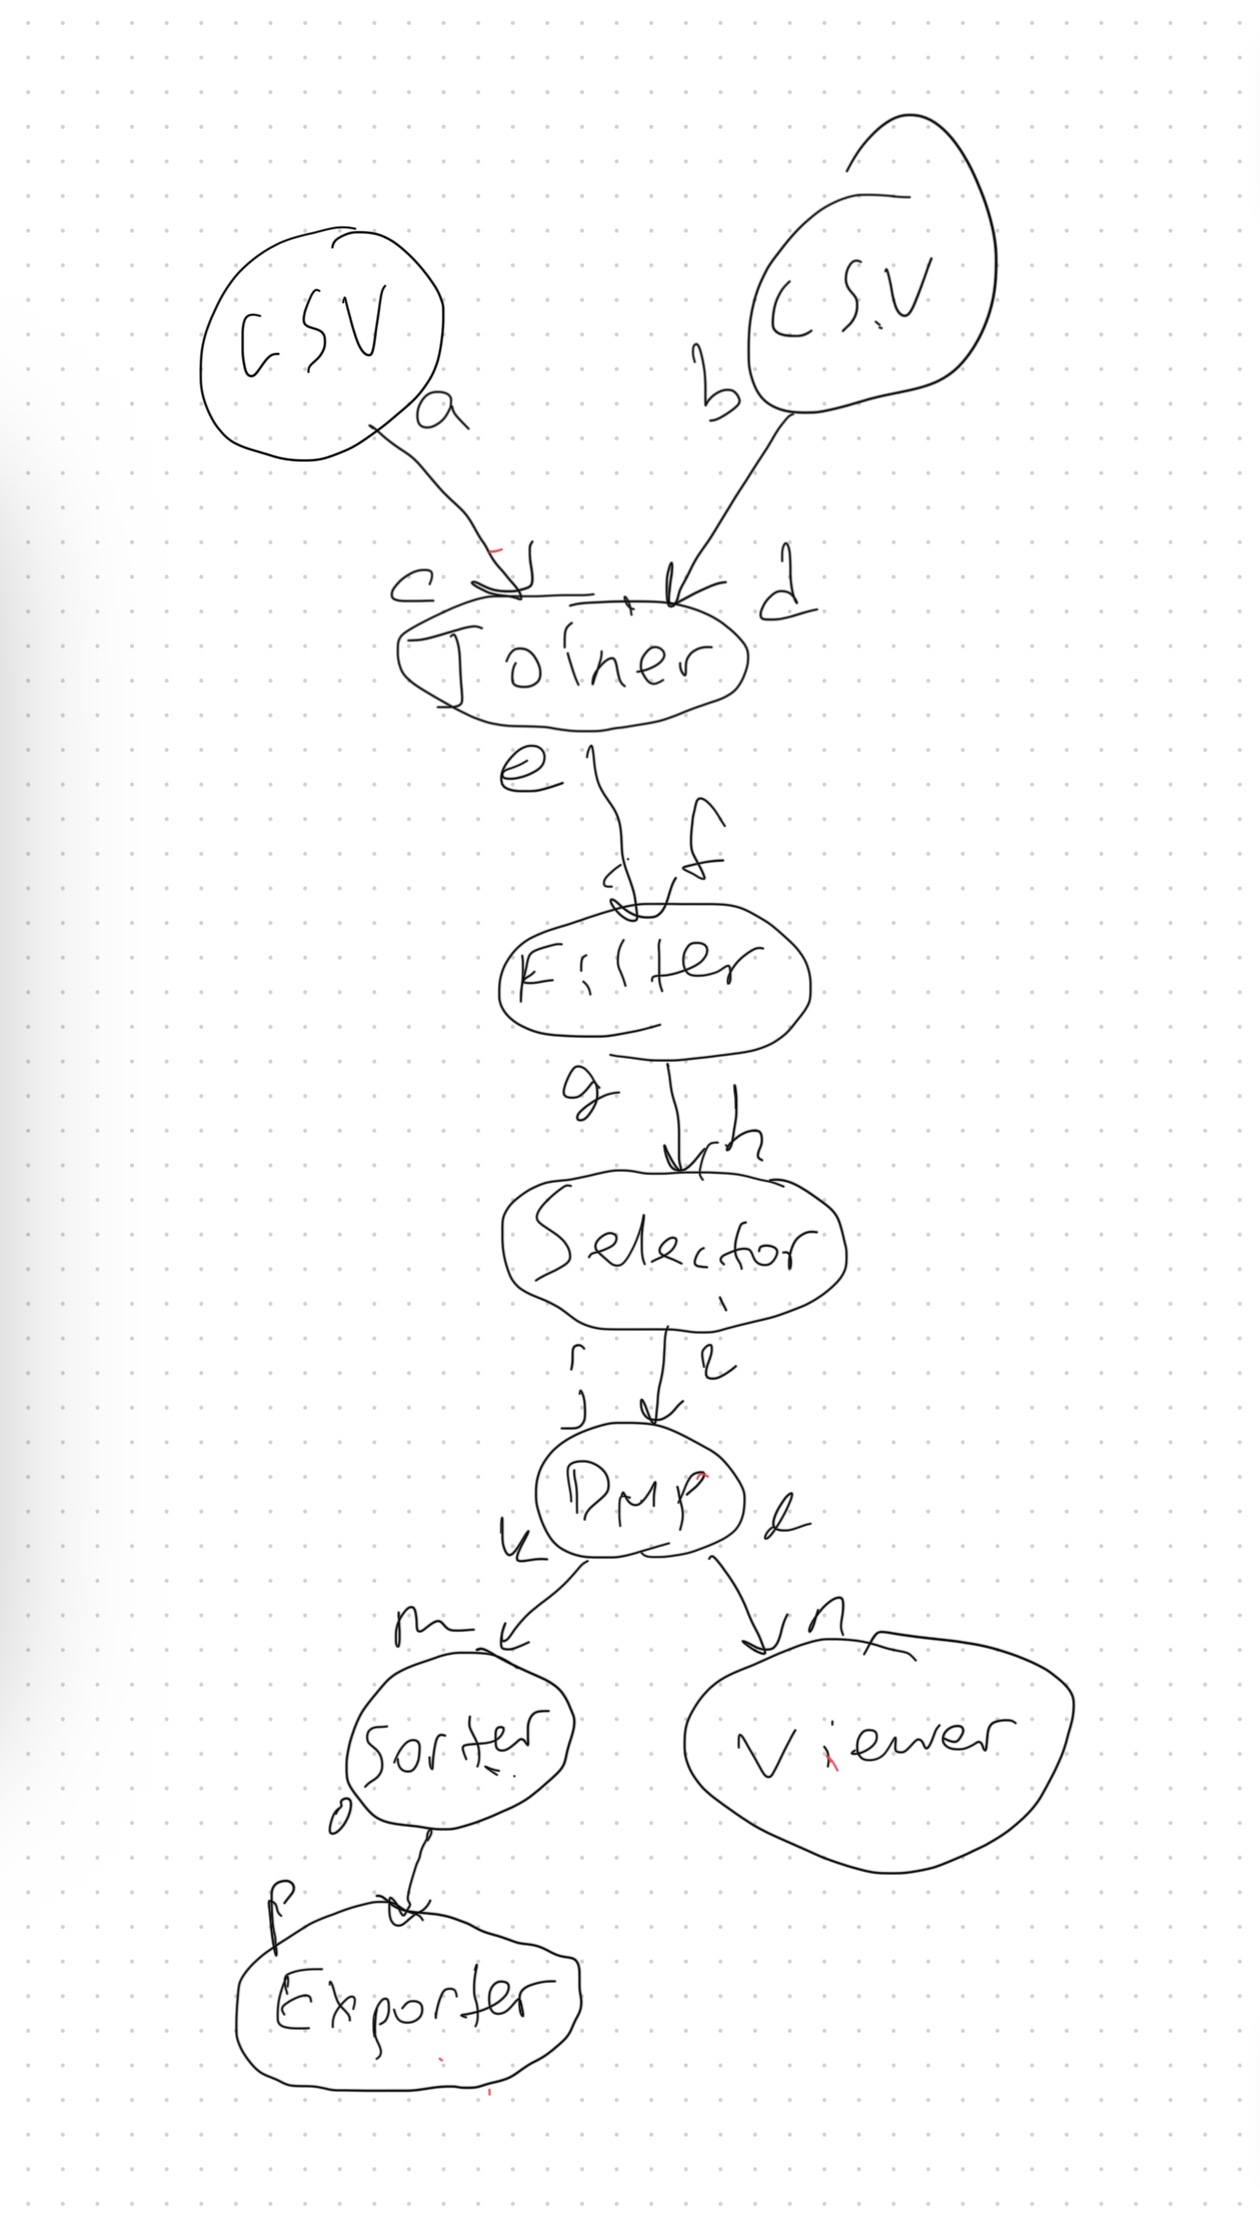 CSV
CSV
a
b
c
d
Joiner
e
f
Filter
g
h
Selector
i
j
DMP
k
l
m
n
Sorter
Viewer
o
p
Exporter